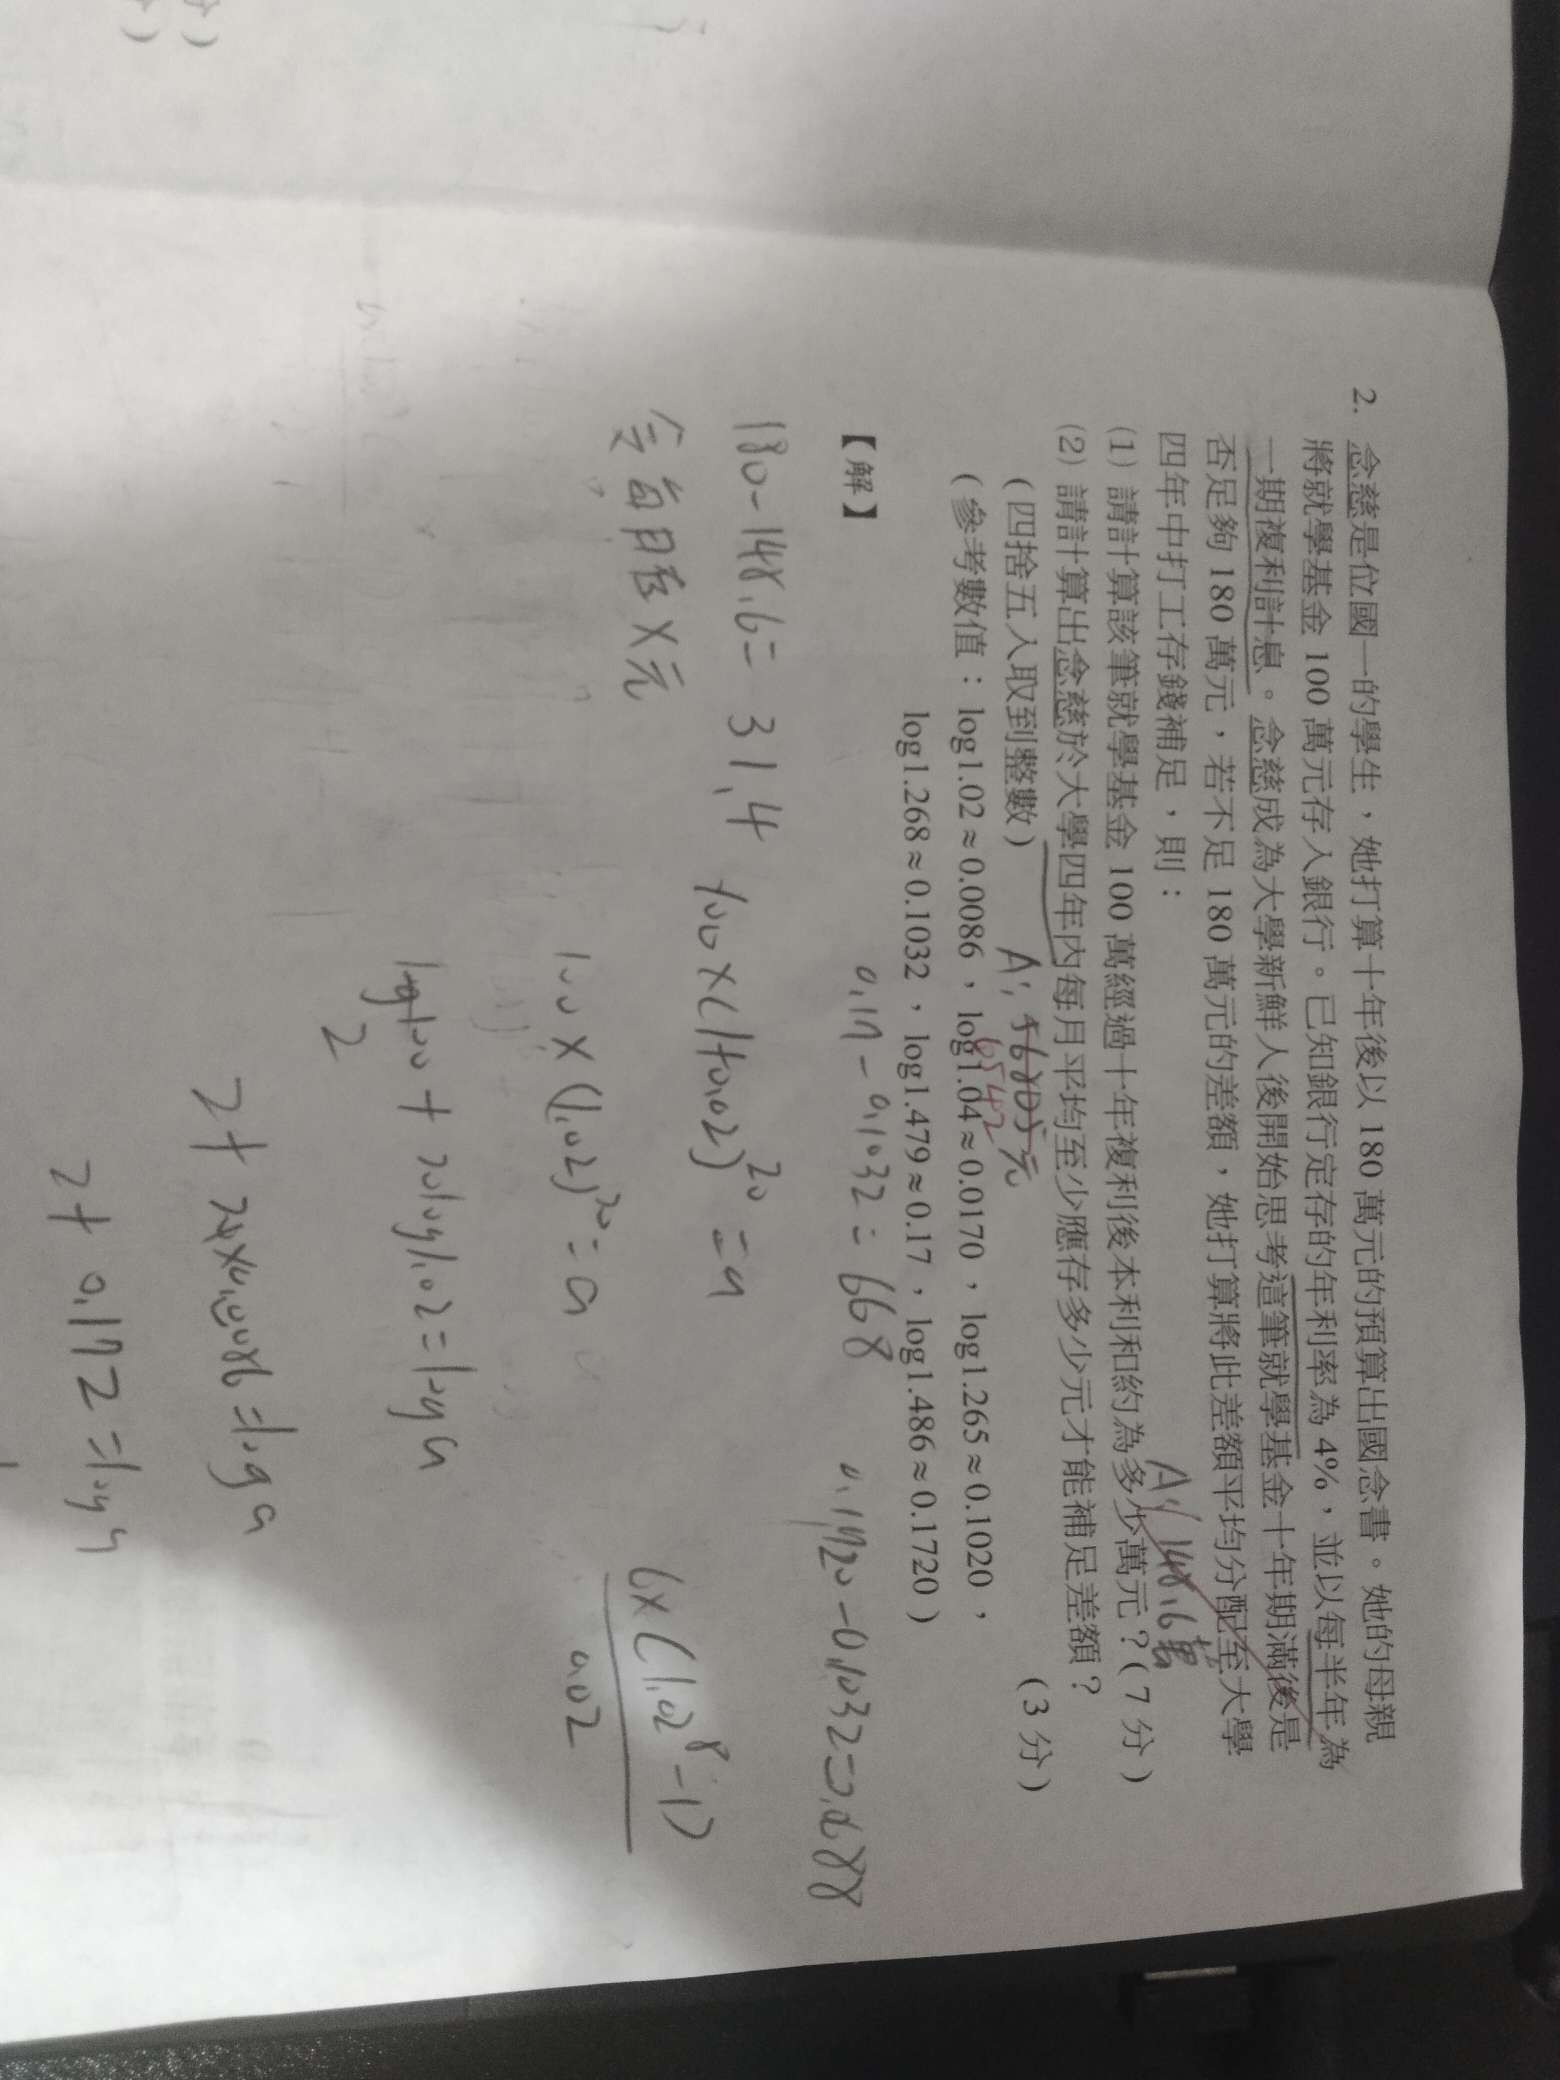 2. 念慈是位國一的學生，她打算十年後以 180 萬元的預算出國念書。她的母親
將就學基金 100 萬元存入銀行。已知銀行定存的年利率為 4%，並以每半年為
一期複利計息。念慈成為大學新鮮人後開始思考這筆就學基金十年期滿後是
否足夠 180 萬元，若不足 180 萬元的差額，她打算將此差額平均分配至大學
四年中打工存錢補足，則：
A: 148.6萬
(1) 請計算該筆就學基金 100 萬經過十年複利後本利和約為多少萬元？(7 分)
(2) 請計算出念慈於大學四年內每月平均至少應存多少元才能補足差額？
(四捨五入取到整數)
(3 分)
A: 元
6542
(參考數值：log1.02≈0.0086，log1.04≈0.0170，log1.265≈0.1020，
log1.268≈0.1032，log1.479≈0.17，log1.486≈0.1720)
【解】
0.17-0.1032=668
180-148.6=31.4
100×(1+0.02)^20=a
令每月存X元
100×(1.02)^20=a
6×(1.02^8-1)
0.02
log100+20log1.02=loga
2
2+20×0.0086=loga
2+0.172=loga